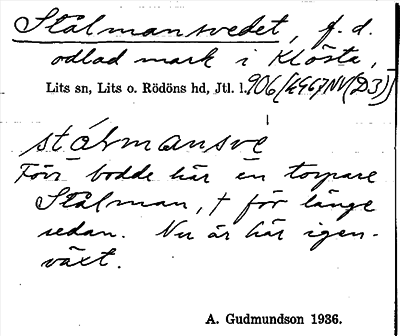 Stålmansvedet, f. d.
odlad mark i Klösta,
Lits sn, Lits o. Rödöns hd, Jtl. l. 906/4967NV(D3)
stålmansve
Förr bodde här en torpare
Stålman, † för länge
sedan. Nu är här igen-
växt.
A. Gudmundson 1936.